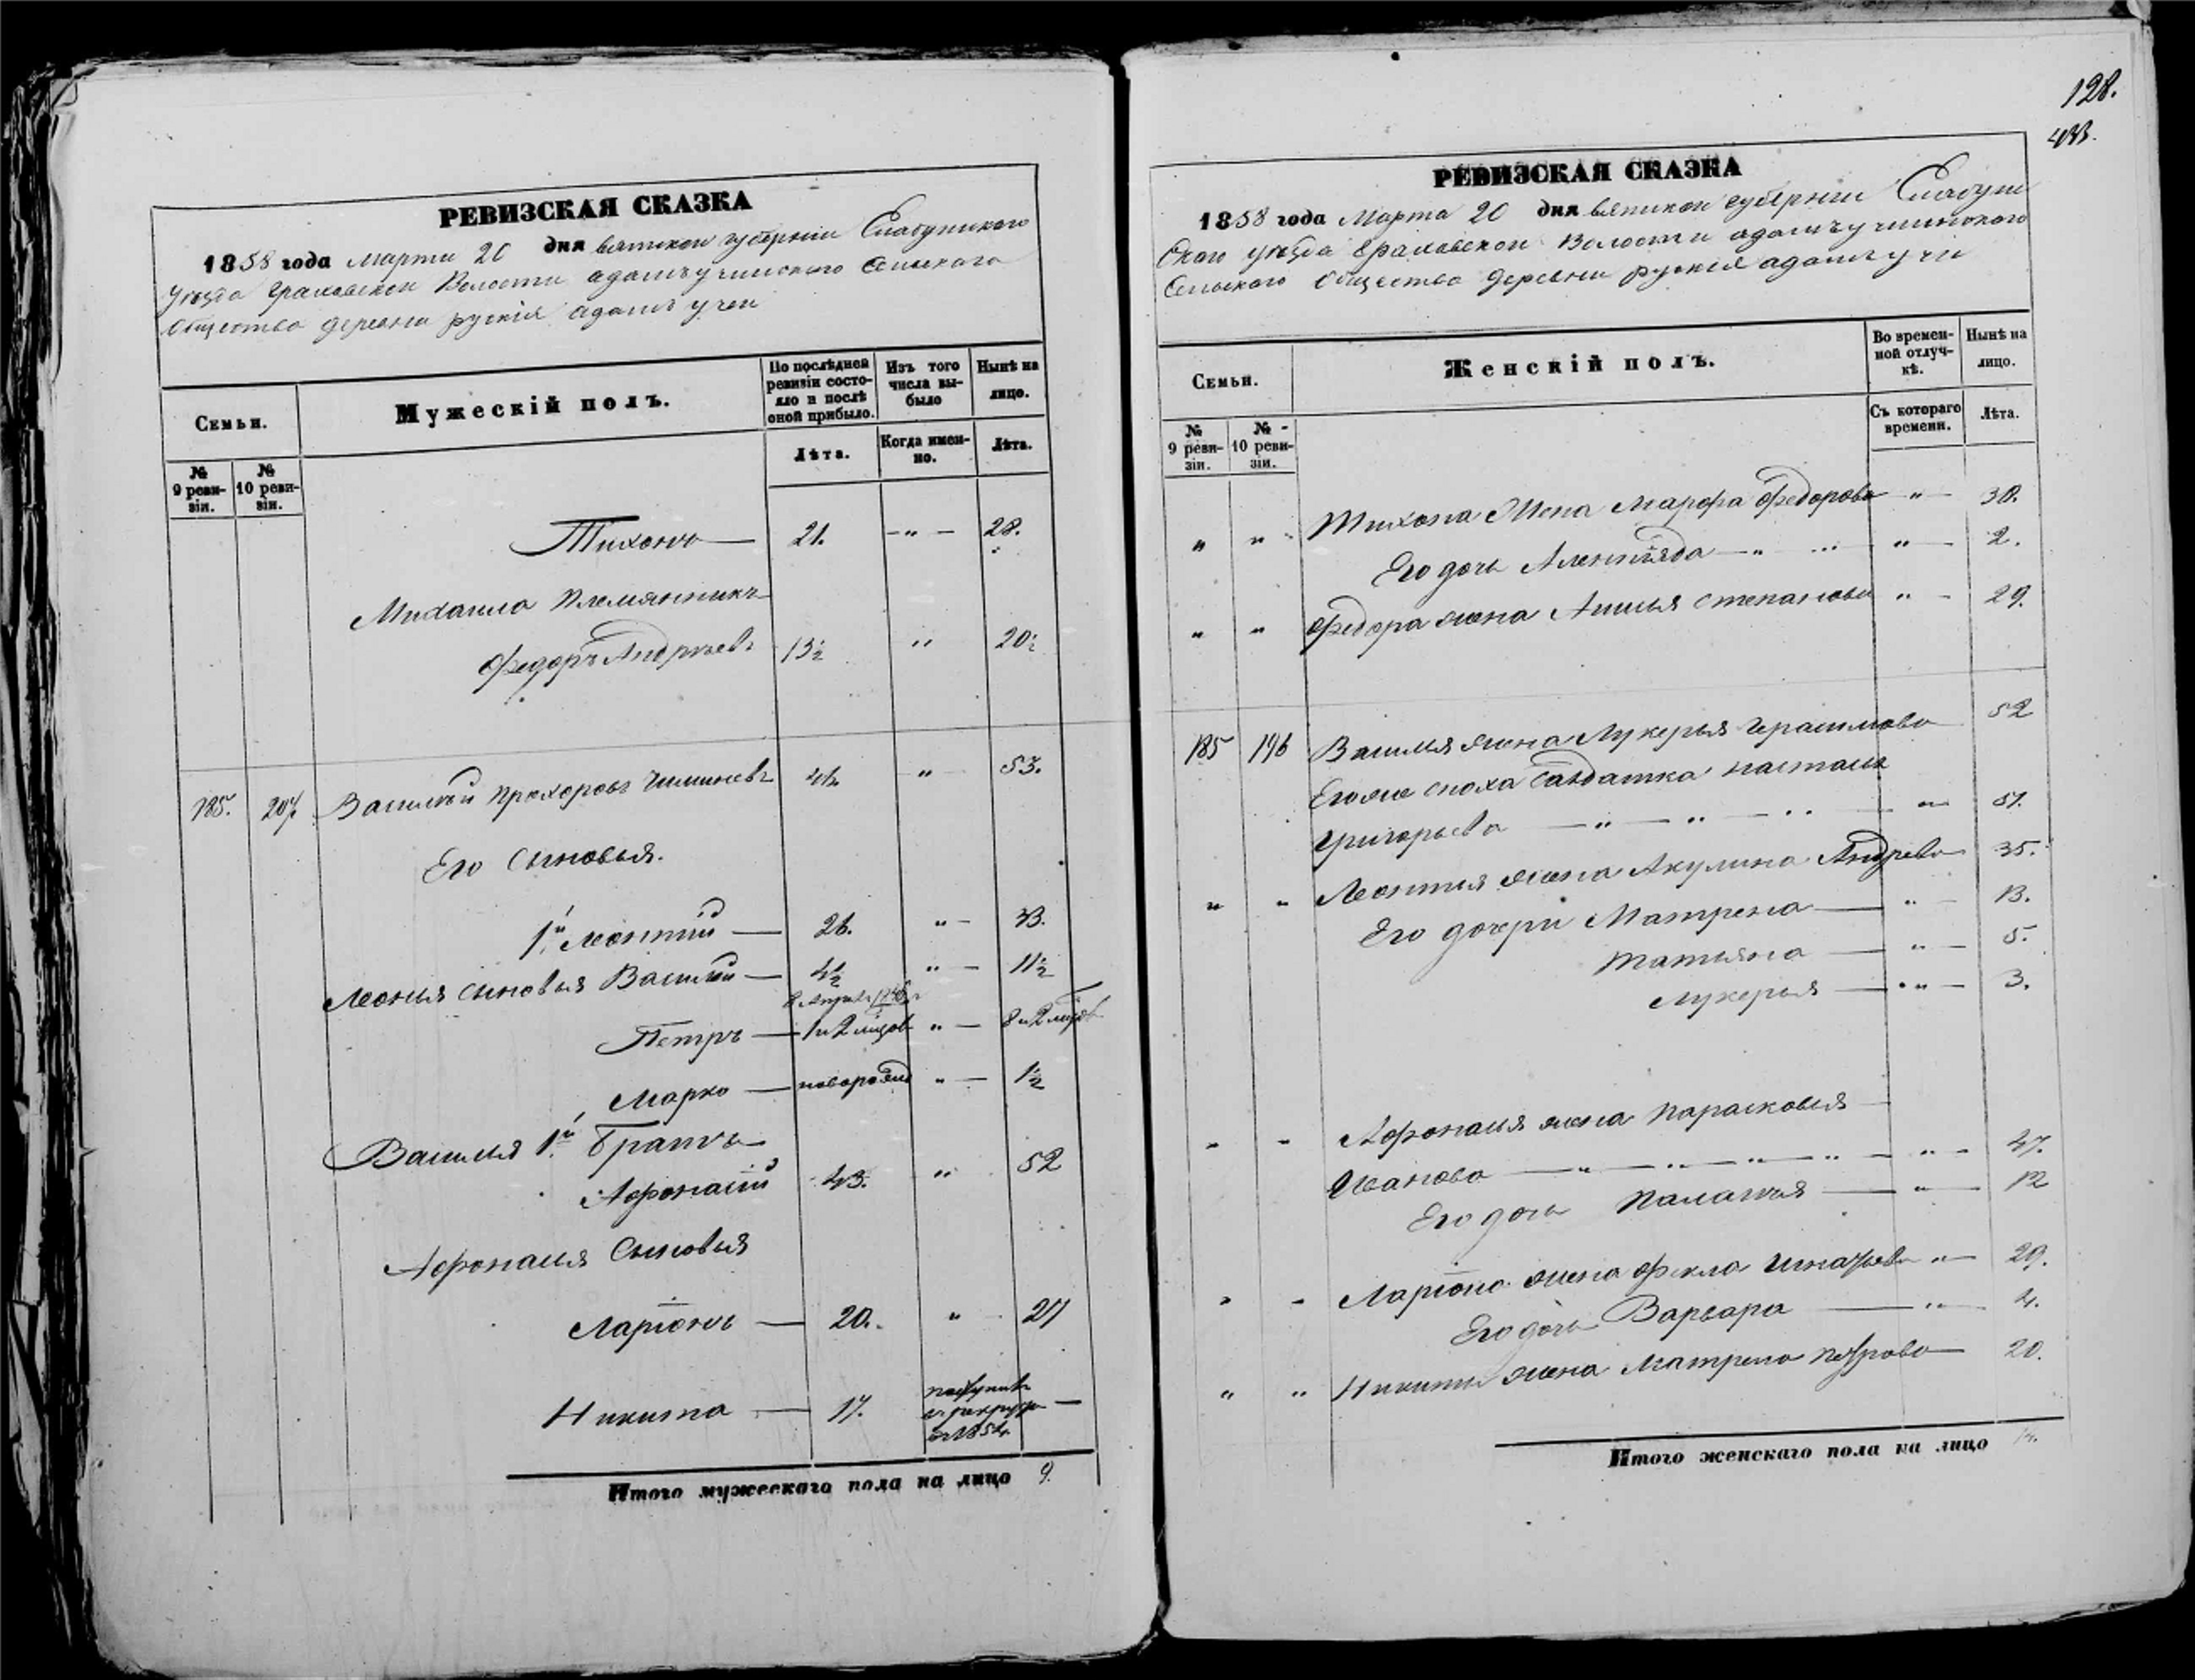 РЕВИЗСКАЯ СКАЗКА
1858 года Марта 20 дня вятской губерніи Елабугского
уезда Граховской Волости адамъучинского Сельскаго
общества деревни рускія адамъ учеи
Семьи.
Мужескій полъ.
По послѣдней ревизіи состояло и послѣ оной прибыло.
Изъ того числа выбыло
Нынѣ на лицо.
№ 9 ревизіи.
№ 10 ревизіи.
Лѣта.
Когда именно.
Лѣта.
Тихонъ — 21. — " — 28.
Михаила племянникъ
Федоръ Андреевъ 13½ " 20½
185. 207. Василий Прохоровъ 46 " 53.
Его Сыновья.
1й Леонтий — 26. " — 33.
Леонтия сыновья Василий — 4½ " — 11½
Петръ — 1 и 2 мѣцов " — 8 и 2 мѣцов
Марко — новорожд " — 1½
Василья 1й Братъ
Афонасий 43. " 52
Афонасия Сыновья
Ларіонъ — 20. " 27
Никита — 17. поступив в рекруты в 1854. —
Итого мужескаго пола на лицо 9.
128.
433.
РЕВИЗСКАЯ СКАЗКА
1858 года Марта 20 дня вятской губерніи Елабуж
ского уезда Граховской Волости адамъучинского
Сельскаго общества деревни рускія адамъ учи
Семьи.
Женскій полъ.
Во временной отлучкѣ.
Нынѣ на лицо.
№ 9 ревизіи.
№ 10 ревизіи.
Съ котораго времени.
Лѣта.
" " Тихона Жена Марфа Федорова " — 30.
Его дочь — " " — 2.
" " Федора жена Анисья степанова " — 29.
185 196 Василья жена Лукерья Герасимова 52
Его же сноха Салдатка настасья
Григорьева — " — " — " — 51.
" " Леонтия жена Акулина Андрева 35.
Его дочери Матрена — " — 13.
татьяна — " — 5.
лукерья — " — 3.
" " Афонасия жена парасковья —
Иванова — " — " — " — " — " — 47.
Его дочь Палагея — " — 12
" " Ларіона жена фекла Игнатьева " — 29.
Его дочь Варвара — " — 4.
" " Никиты жена Матрена петрова — 20.
Итого женскаго пола на лицо